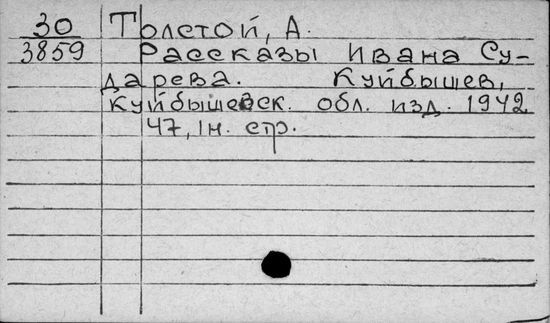 30 Толстой, А.
3859 Рассказы Ивана Су-
дарева. Куйбышев,
Куйбышевск. обл. изд. 1942
47, 1н. стр.